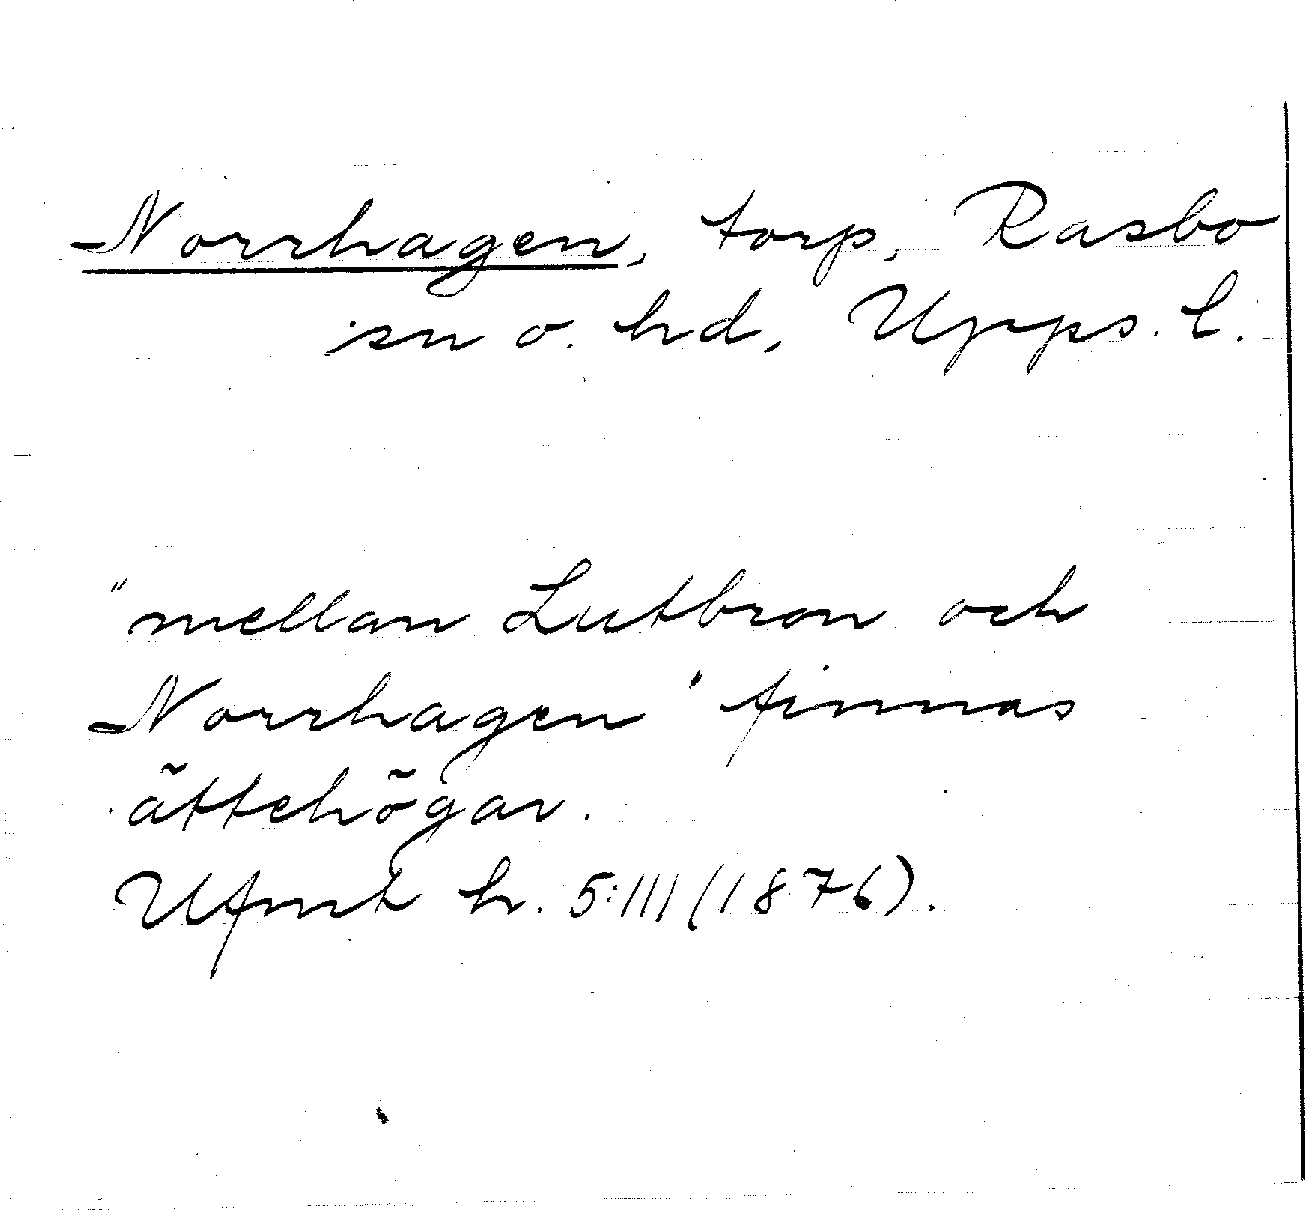 Norrhagen, torp, Rasbo
sn o. hd, Upps. l.
"mellan Lutbron och
Norrhagen" finnas
ättehögar.
Ufmt h. 5:111 (1876).